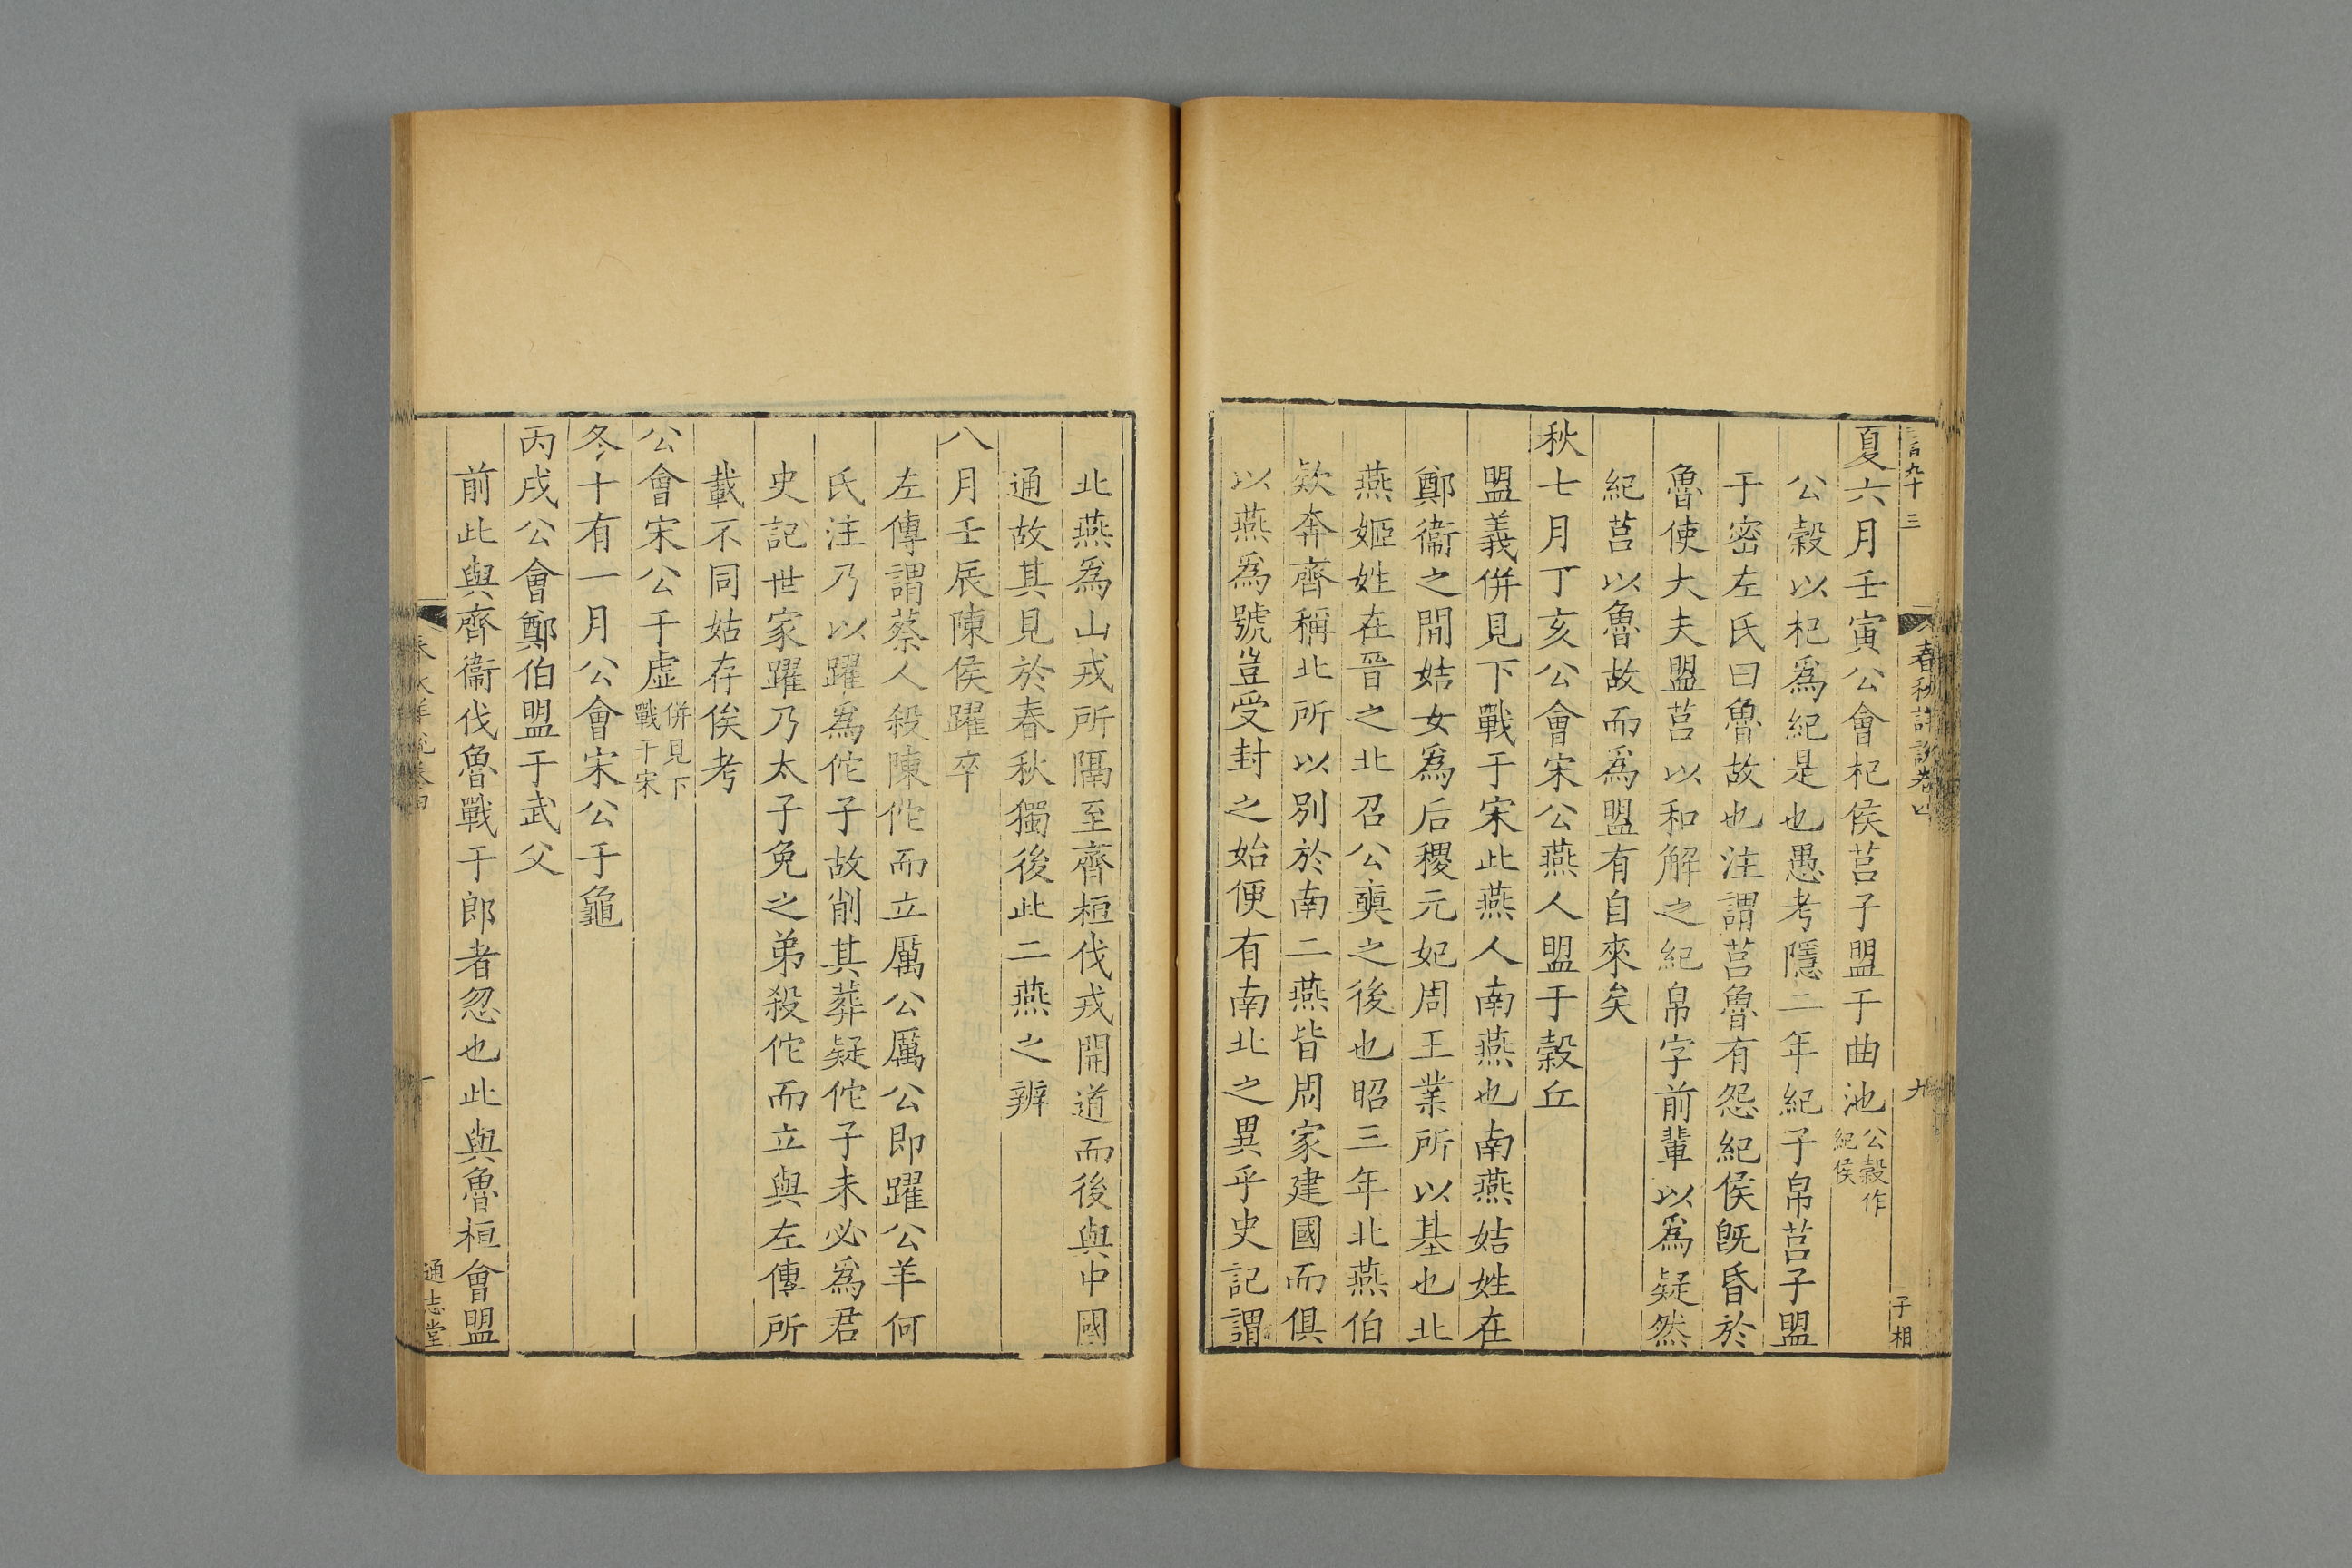 夏六月壬寅公會杞侯莒子盟于曲池公穀作紀侯
公穀以杞爲紀是也愚考隱二年紀子帛莒子盟
于密左氏曰魯故也注謂莒魯有怨紀侯旣昏於
魯使大夫盟莒以和解之紀帛字前輩以爲疑然
紀莒以魯故而爲盟有自來矣
秋七月丁亥公會宋公燕人盟于穀丘
盟義併見下戰于宋此燕人南燕也南燕姞姓在
鄭衞之閒姞女爲后稷元妃周王業所以基也北
燕姬姓在晉之北召公奭之後也昭三年北燕伯
欵奔齊稱北所以別於南二燕皆周家建國而俱
以燕爲號豈受封之始便有南北之異乎史記謂
北燕爲山戎所隔至齊桓伐戎開道而後與中國
通故其見於春秋獨後此二燕之辨
八月壬辰陳侯躍卒
左傳謂蔡人殺陳佗而立厲公厲公即躍公羊何
氏注乃以躍爲佗子故削其葬疑佗子未必爲君
史記世家躍乃太子免之弟殺佗而立與左傳所
載不同姑存俟考
公會宋公于虛併見下戰于宋
冬十有一月公會宋公于龜
丙戌公會鄭伯盟于武父
前此與齊衞伐魯戰于郎者忽也此與魯桓會盟
春秋詳說卷四
九
子相
通志堂